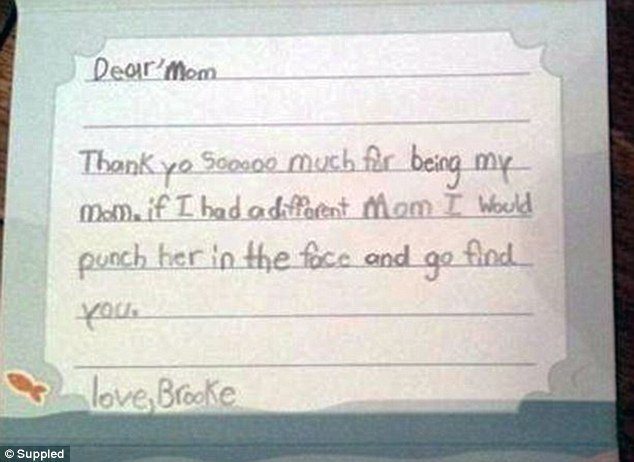 Dear Mom
Thank yo Sooooo much for being my
mom. if I had a different Mom I would
punch her in the face and go find
you.
love, Brooke
© Suppled